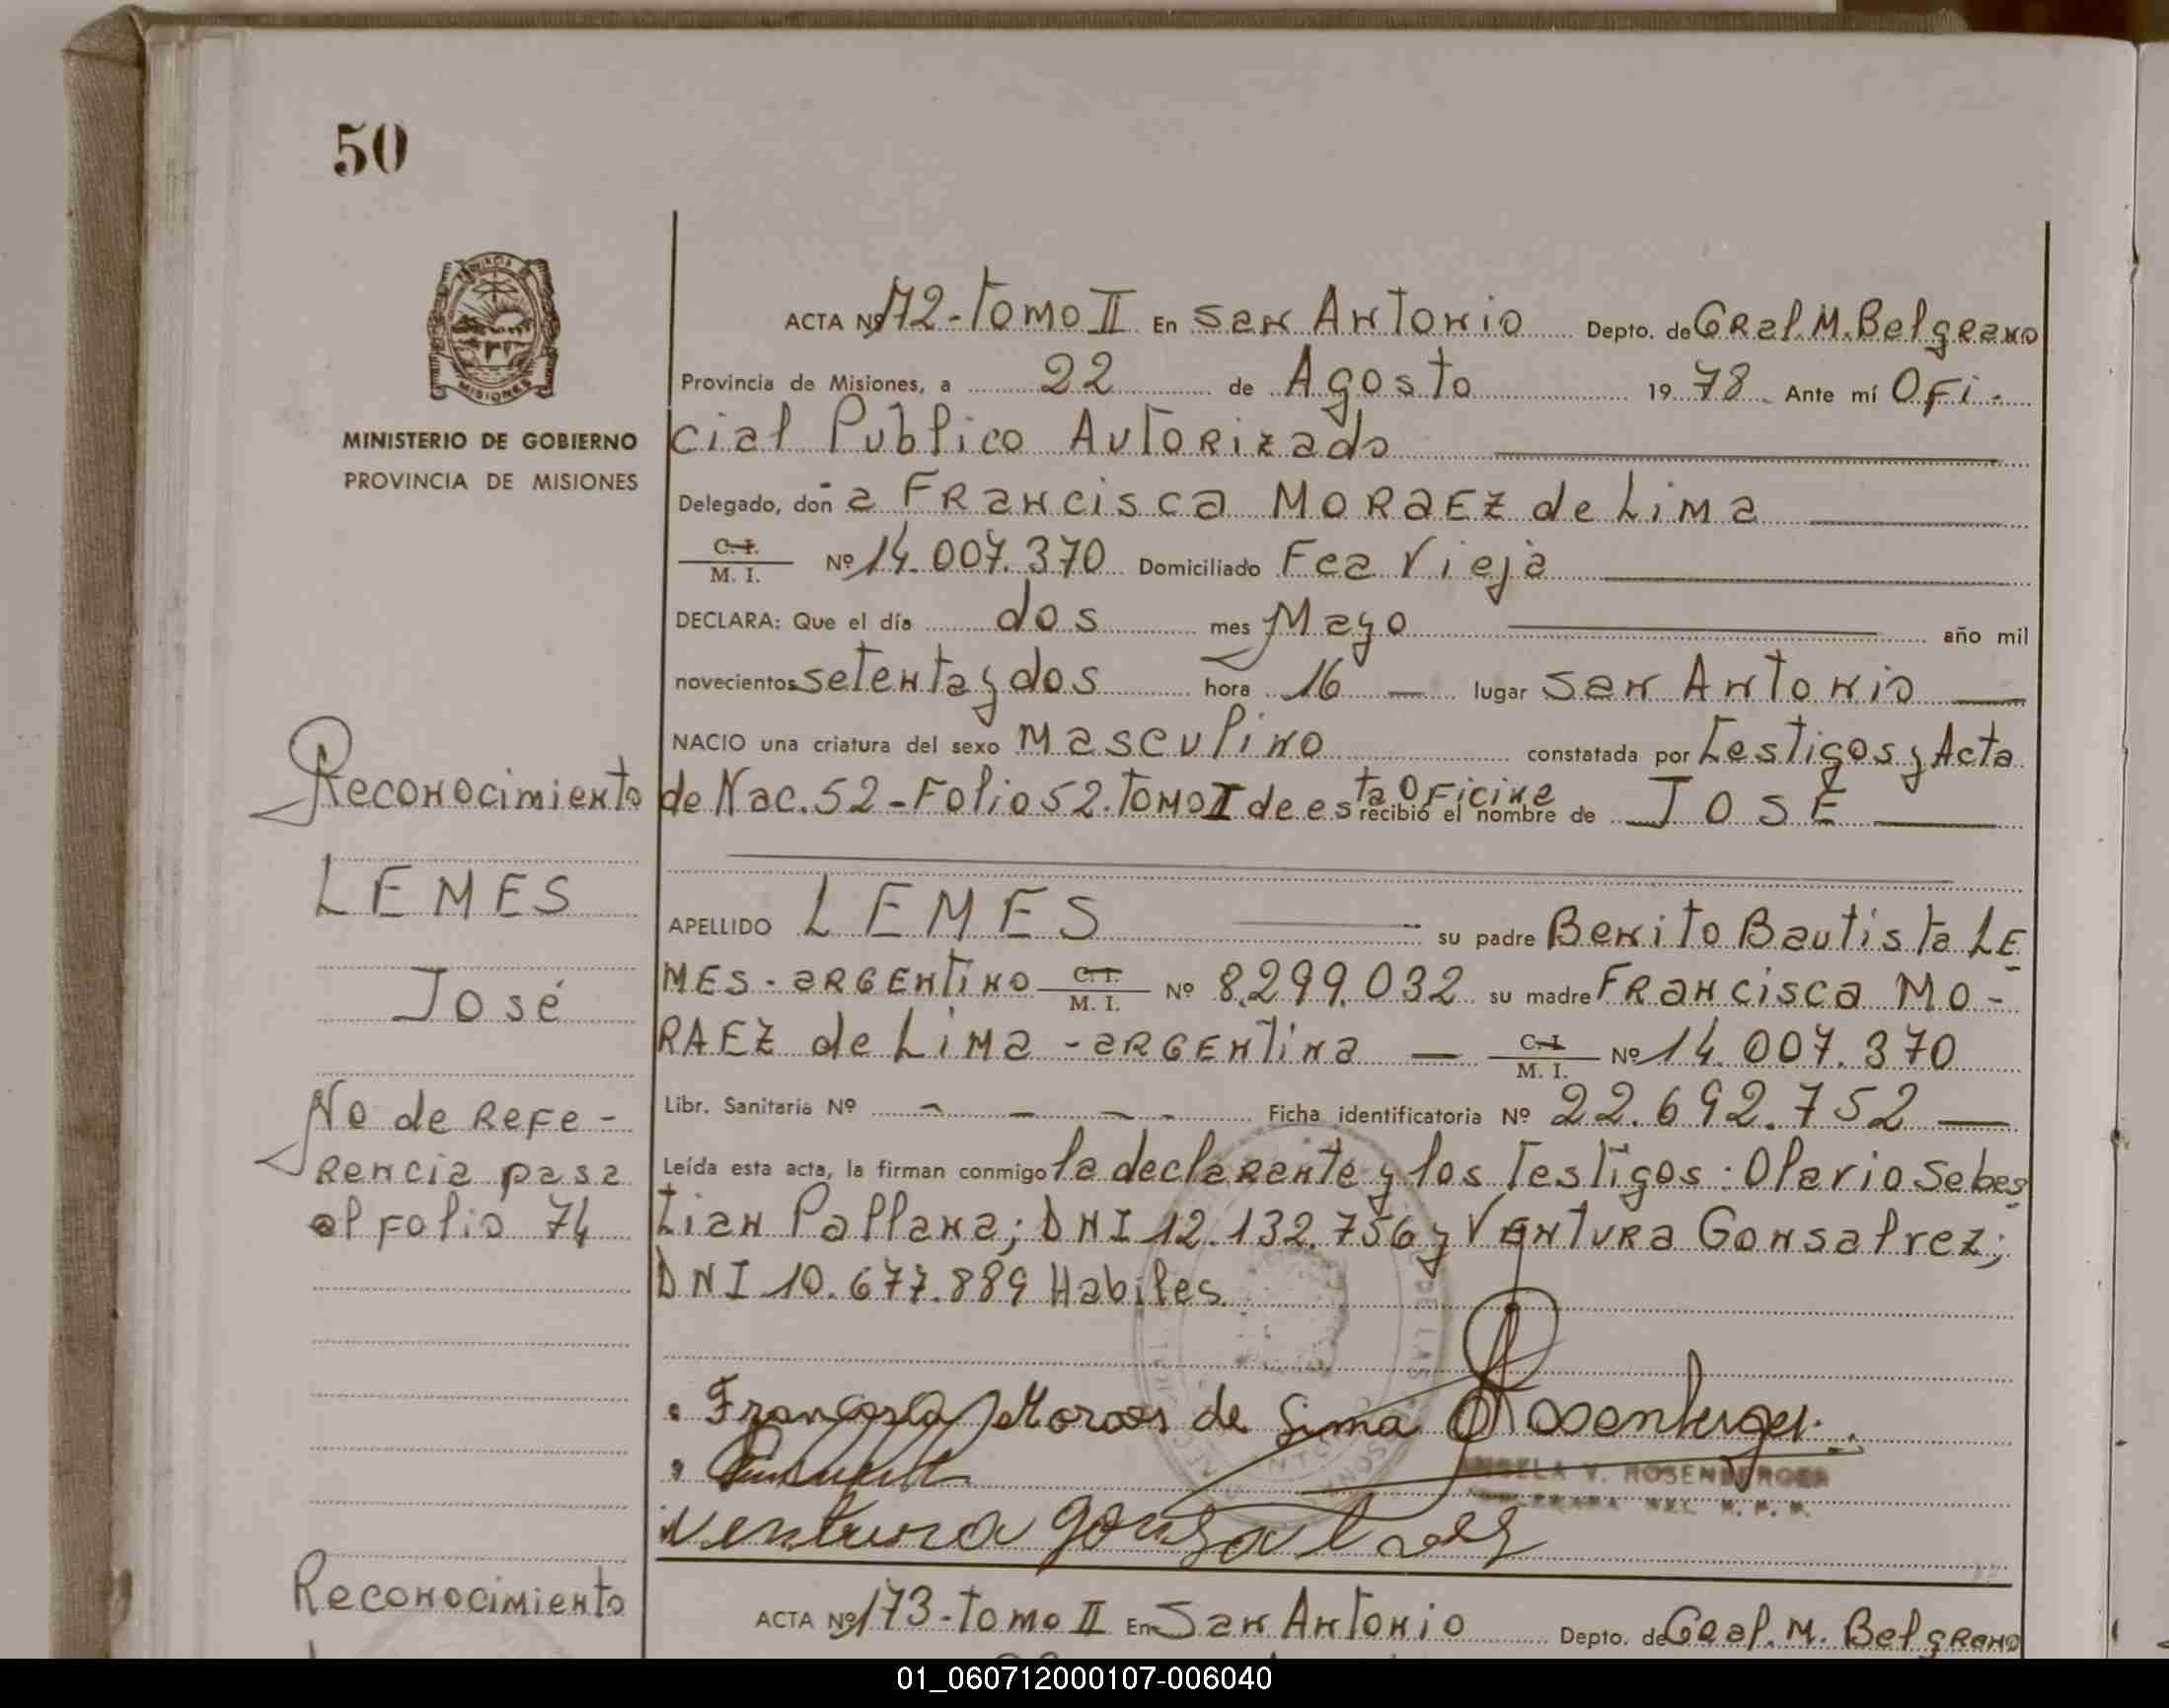 50
PROVINCIA
MISIONES
MINISTERIO DE GOBIERNO
PROVINCIA DE MISIONES
ACTA Nº 172-Tomo II En San Antonio Depto. de Gral. M. Belgrano
Provincia de Misiones, a 22 de Agosto 1978 Ante mí Ofi-
cial Publico Autorizado
Delegado, don a Francisca MORAEZ de Lima
C.I. / M. I. Nº 14.007.370 Domiciliado Fca Vieja
DECLARA: Que el día dos mes Mayo año mil
novecientos setenta y dos hora 16 lugar San Antonio
NACIO una criatura del sexo masculino constatada por Testigos y Acta
de Nac. 52-Folio 52. Tomo I de esta Oficina recibió el nombre de JOSÉ
APELLIDO LEMES su padre Benito Bautista LE
MES-argentino C.I. / M. I. Nº 8.299.032 su madre Francisca MO-
RAEZ de Lima-argentina C.I. / M. I. Nº 14.007.370
Libr. Sanitaria Nº - - - - Ficha identificatoria Nº 22.692.752
Leída esta acta, la firman conmigo la declarante y los Testigos: Olario Sebas
tian Pallana; DNI 12.132.756 y Ventura Gonsalvez;
DNI 10.677.889 Habiles.
Reconocimiento
LEMES
José
No de Refe-
rencia pasa
al folio 74
Francisca Moraes de Lima Rosenberger
ANGELA V. ROSENBERGER
ventura
Reconocimiento
ACTA Nº 173-Tomo II En San Antonio Depto. de Gral. M. Belgrano
01_060712000107-006040